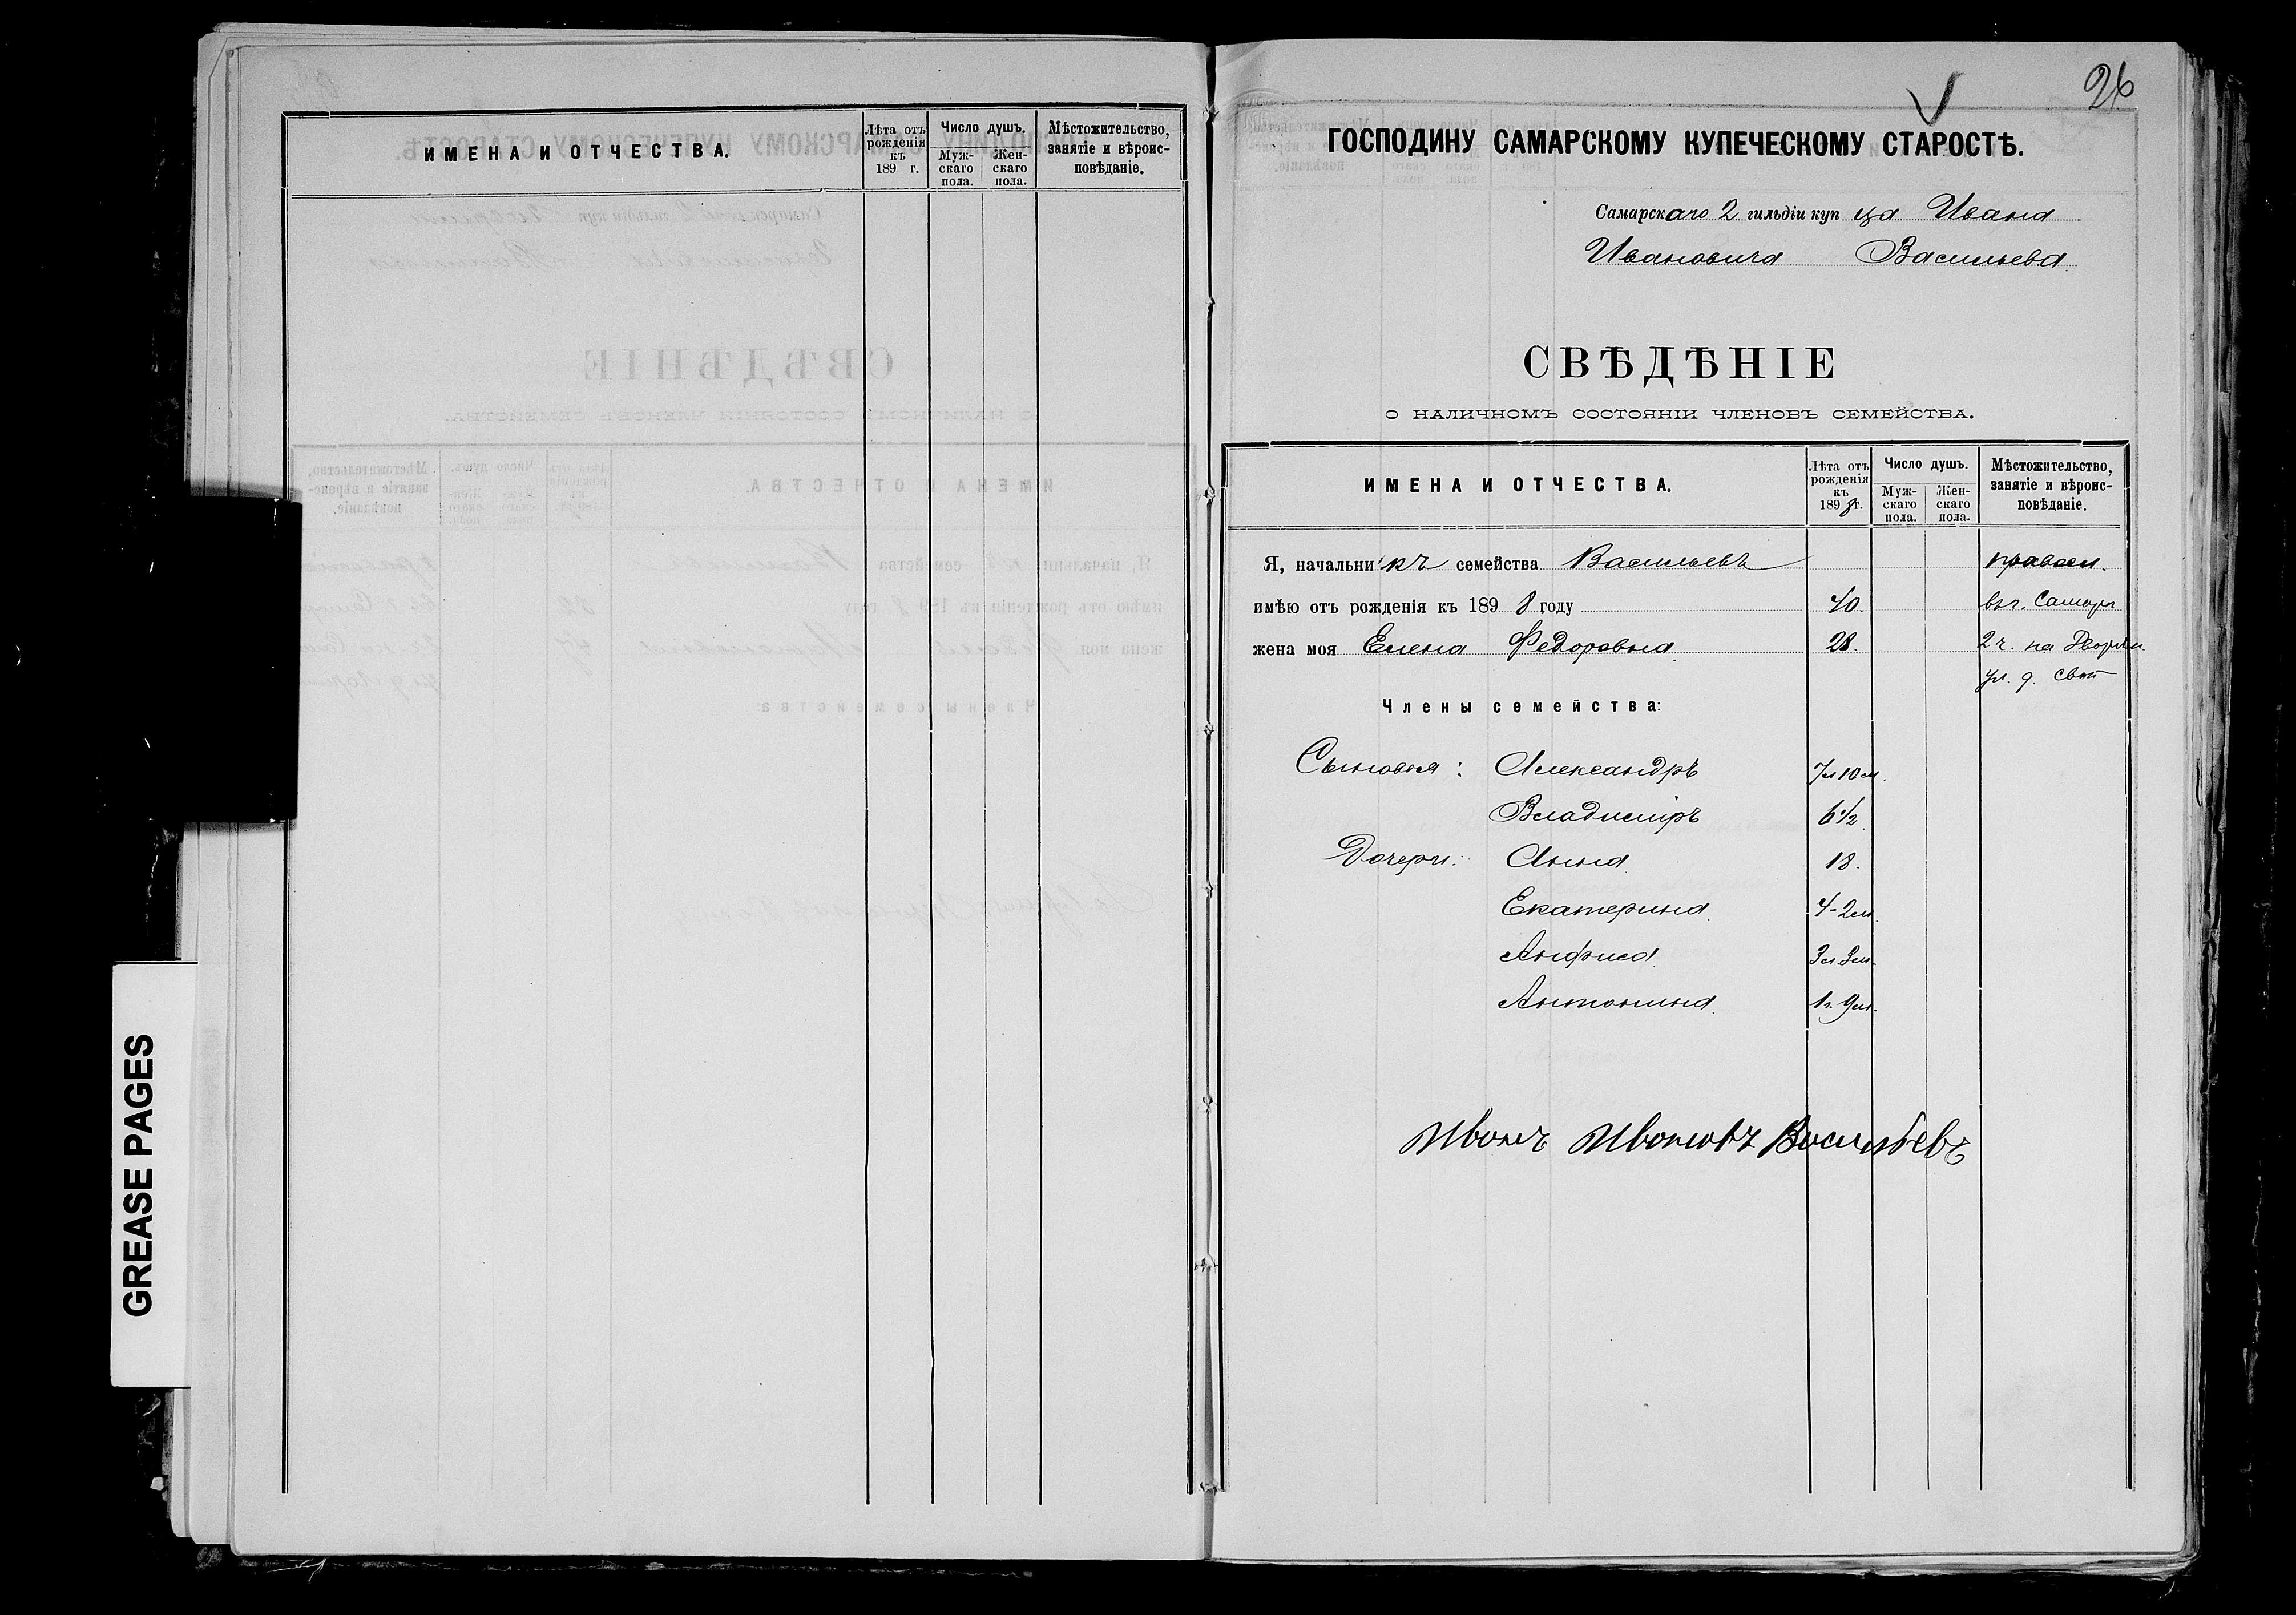 ИМЕНА И ОТЧЕСТВА.
Лѣта отъ рожденія къ 189 г.
Число душъ.
Муж-скаго пола.
Жен-скаго пола.
Мѣстожительство, занятіе и вѣроис-повѣданіе.
GREASE PAGES
26
ГОСПОДИНУ САМАРСКОМУ КУПЕЧЕСКОМУ СТАРОСТѢ.
Самарскаго 2 гильдіи купца Ивана
Ивановича Васильева
СВѢДѢНІЕ
О НАЛИЧНОМЪ СОСТОЯНІИ ЧЛЕНОВЪ СЕМЕЙСТВА.
ИМЕНА И ОТЧЕСТВА.
Лѣта отъ рожденія къ 1898 г.
Число душъ.
Муж-скаго пола.
Жен-скаго пола.
Мѣстожительство, занятіе и вѣроис-повѣданіе.
Я, начальникъ семейства Васильевъ правосл.
имѣю отъ рожденія къ 1898 году 40. въ г. Самарѣ
жена моя Елена Федоровна 28. 2 ч. на Дворян.
ул. д. свой
Члены семейства:
Сыновья: Александръ 7л 10м.
Владиміръ 6 1/2.
Дочери: Анна. 18.
Екатерина. 4-2м.
Анфиса. 3л 3м.
Антонина. 1г. 9м.
Иванъ Ивановъ Васильевъ